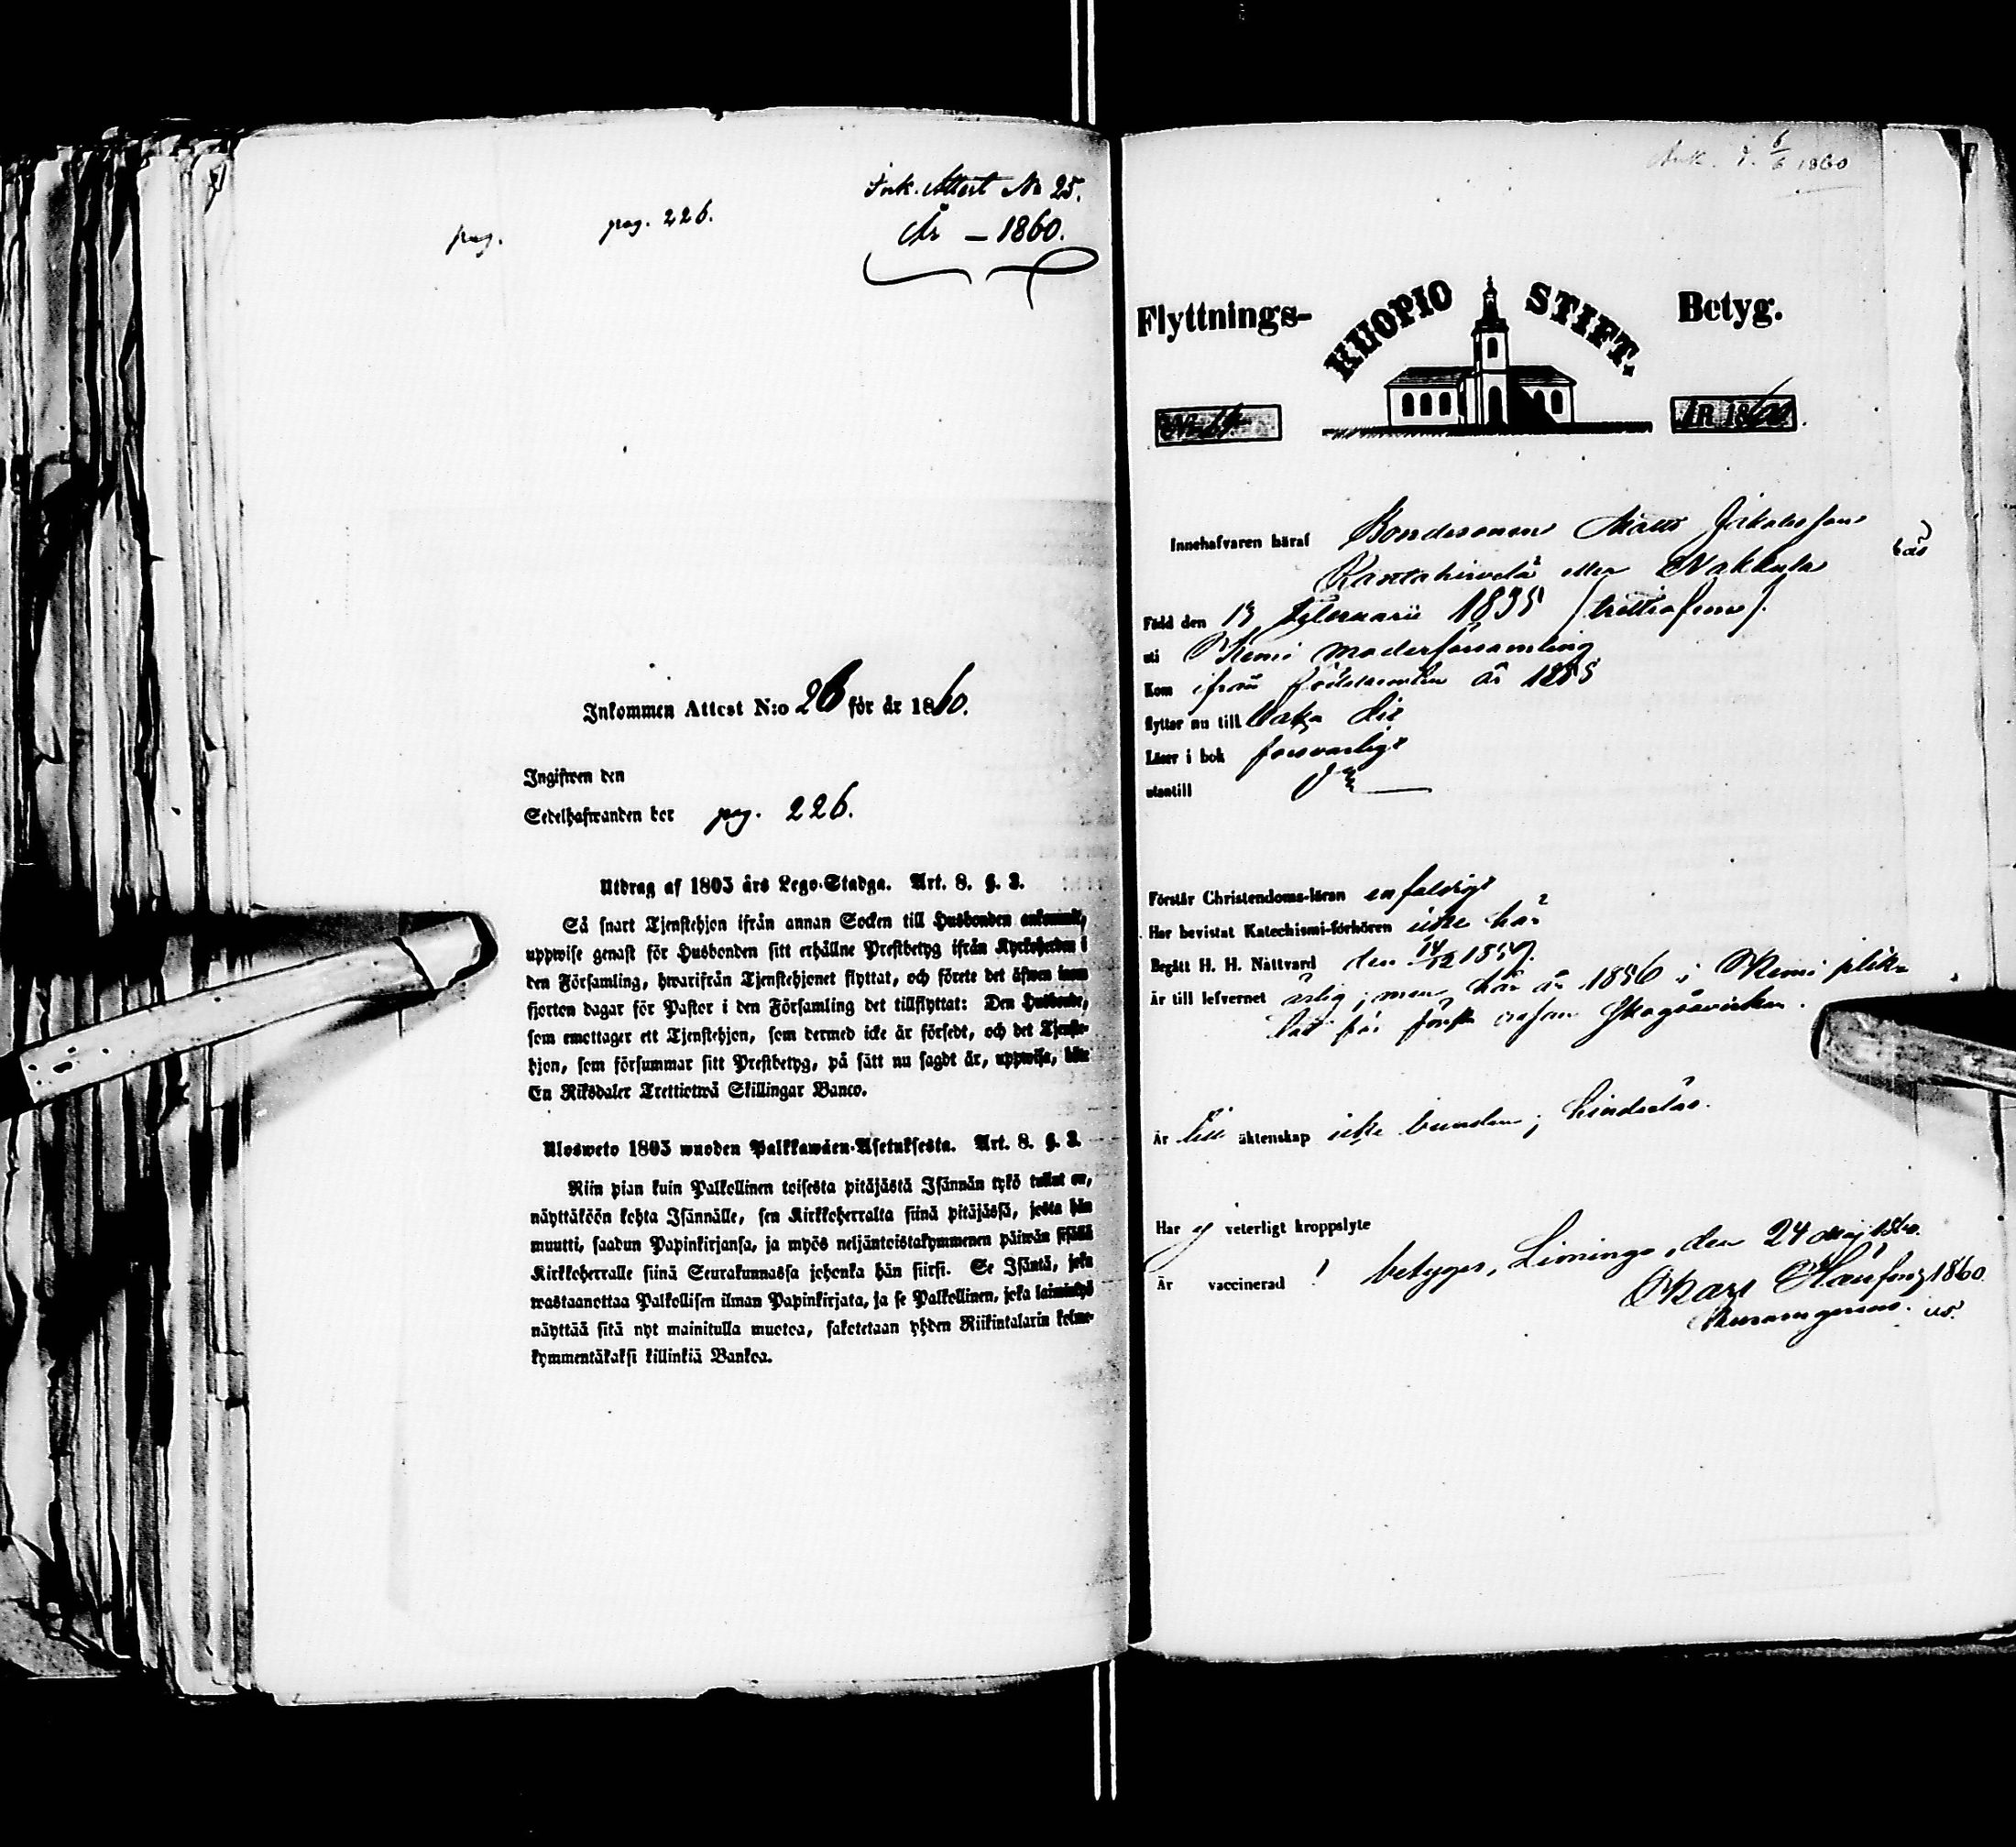 Ink. Attest No 25.
pag. pag. 226. År – 1860.
Inkommen Attest N:o 26 för år 1860.
Ingifwen den
Sedelhafwanden der pag. 226.
Utdrag af 1805 års Lego-Stadga. Art. 8. §. 3.
Så snart Tjenstehjon ifrån annan Socken till Husbonden ankommit,
uppwise genast för Husbonden sitt erhållne Prestbetyg ifrån Kyrkoherden i
den Församling, hwarifrån Tjenstehjonet flyttat, och förete det äfwen inom
fjorton dagar för Pastor i den Församling det tillflyttat: Den Husbonde,
som emottager ett Tjenstehjon, som dermed icke är försedt, och det Tjenste-
hjon, som försummar sitt Prestbetyg, på sätt nu sagdt är, uppwisa, böte
En Riksdaler Trettiotwå Skillingar Banco.
Ulosweto 1805 wuoden Palkkawäen-Asetuksesta. Art. 8. §. 3.
Niin pian kuin Palkollinen toisesta pitäjästä Isännän tykö tullut on,
näyttäköön kohta Isännälle, sen Kirkkoherralta siinä pitäjässä, josta hän
muutti, saadun Papinkirjansa, ja myös neljäntoistakymmenen päiwän sisällä
Kirkkoherralle siinä Seurakunnassa johonka hän siirsi. Se Isäntä, joka
wastaanottaa Palkollisen ilman Papinkirjata, ja se Palkollinen, joka laiminlyö
näyttää sitä nyt mainitulla muotoa, saketetaan yhden Riikintalarin kolme-
kymmentäkaksi killinkiä Bankoa.
Ank. d. 6/6 1860
Flyttnings- KUOPIO STIFT. Betyg.
ÅR 1860.
Innehafvaren häraf Bondesonen Matts Jakobsson
eller Nakkula
Född den 13 Februarii 1835 (trettiofem).
uti Kemi moderförsamling
Kom ifrån födelseorten år 1855
flyttar nu till baka dit
Läser i bok försvarligt
utantill
Förstår Christendoms-läran enfaldigt
Har bevistat Katechismi-förhören icke här
Begått H. H. Nattvard den
Är till lefvernet ärlig; men har år 1856 i Kemi plik-
tat för första resan
Är till äktenskap icke bunden; hinderlös.
Har ej veterligt kroppslyte
Är vaccinerad! betygar, Limingo, den 24 Maj 1860.